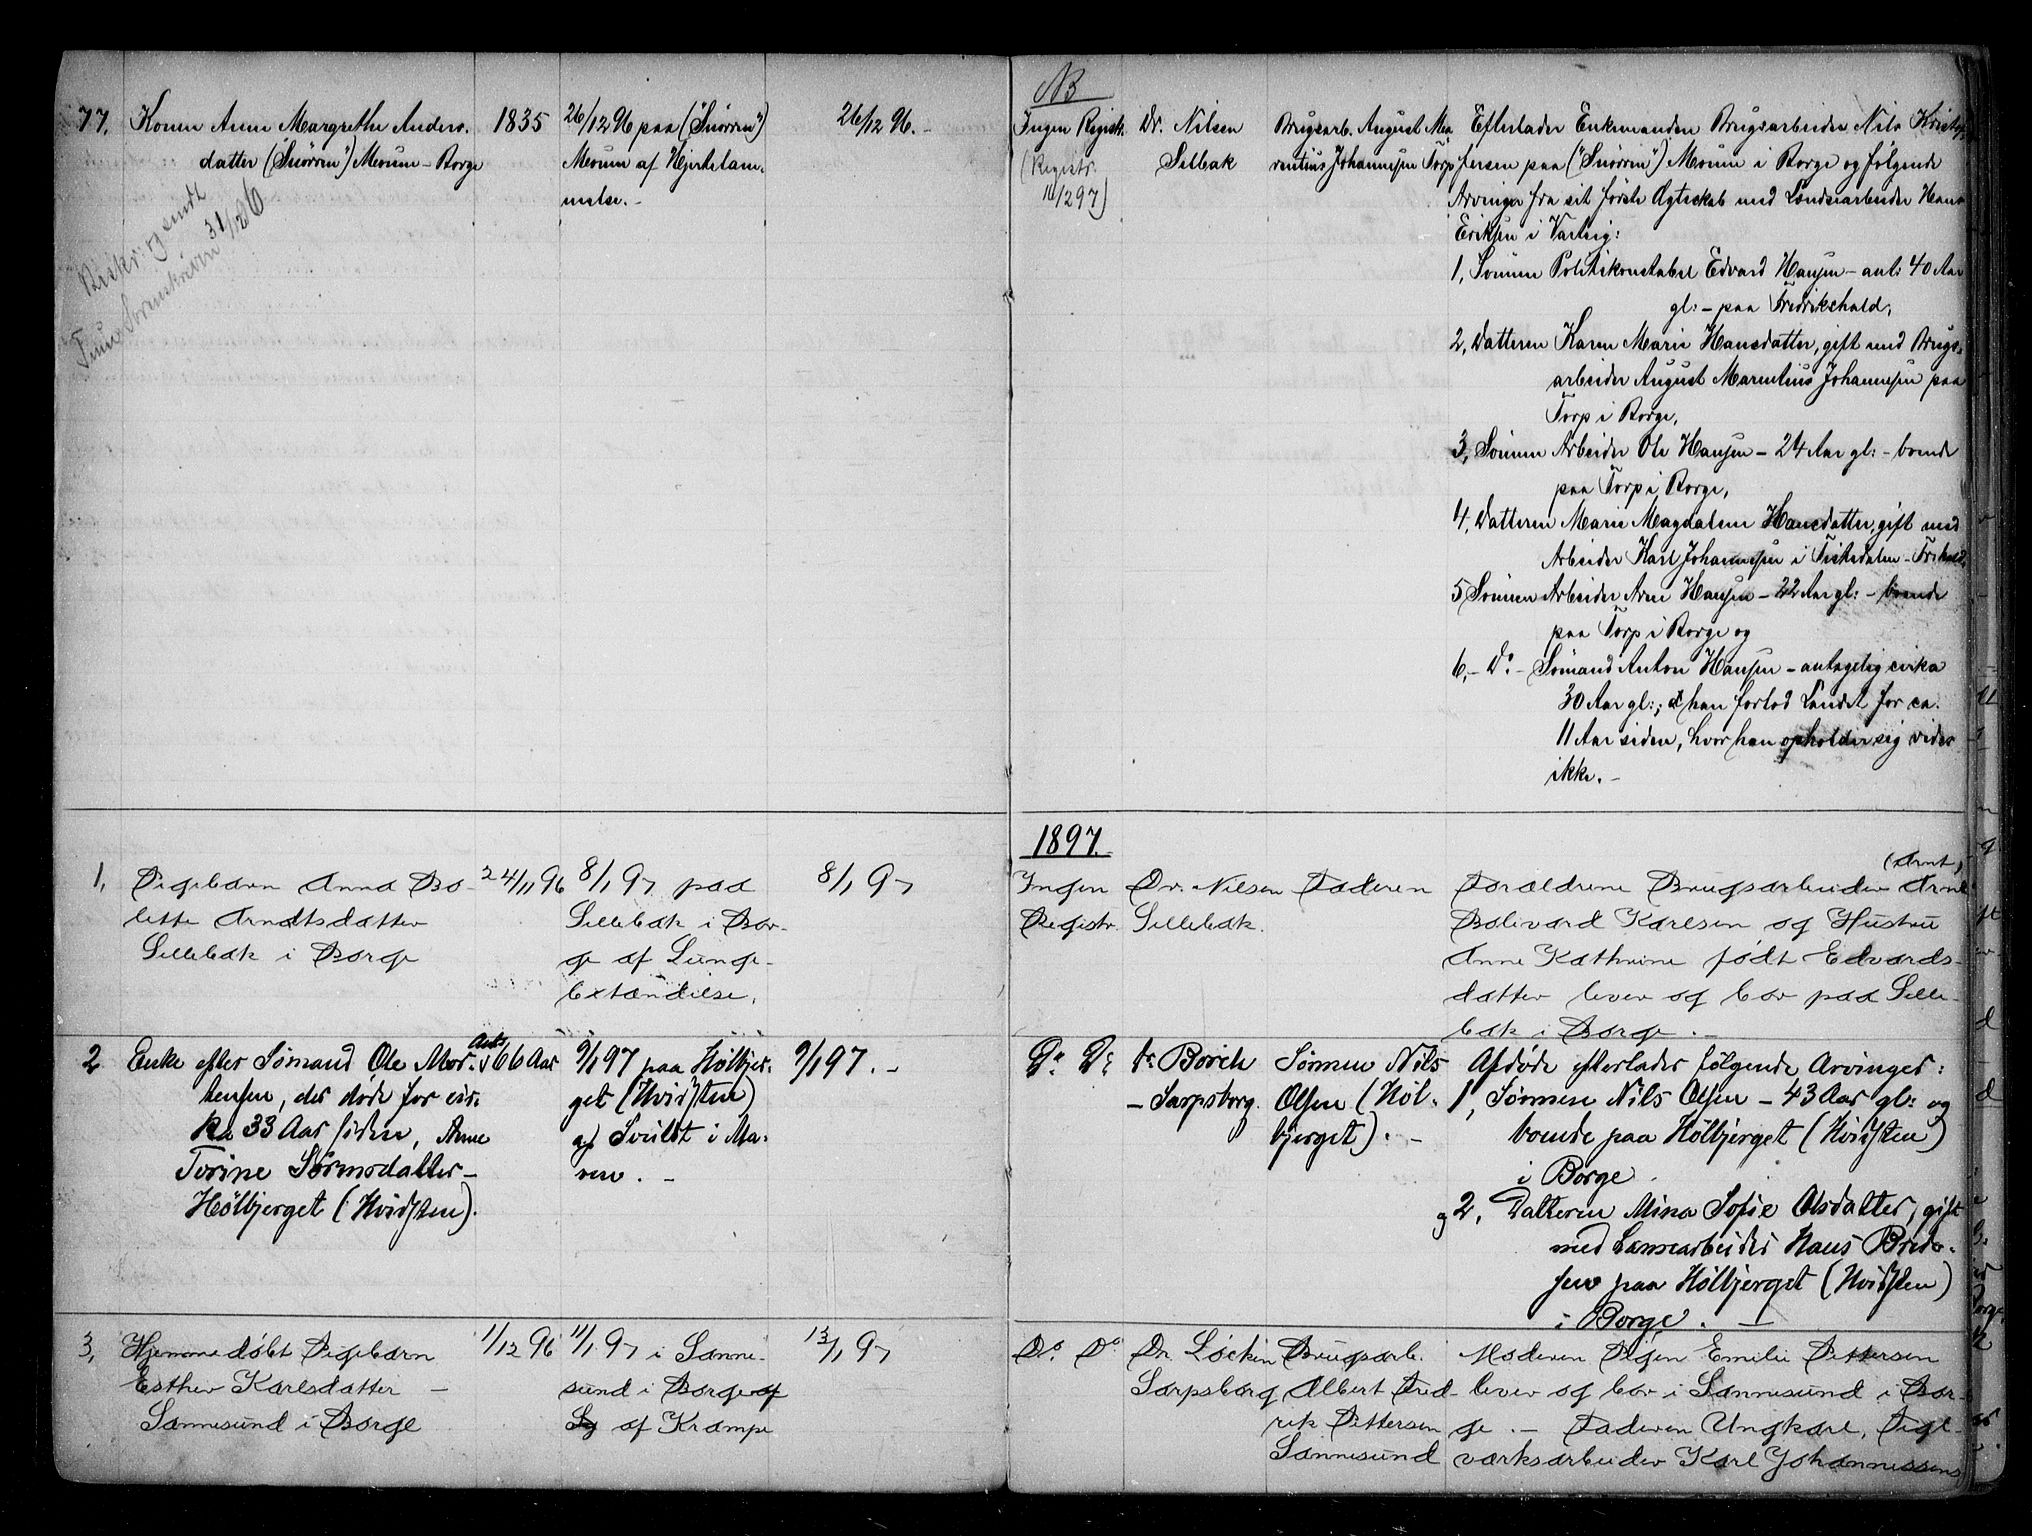 77. Konen Anne Margrethe Anders-
datter ("Snörren") Moum - Borge
Beskr: og sendt
Tune Sorenskriveri 31/12 96
1835
26/12 96 paa ("Snörren")
Moum af Hjertelam-
melse. -
26/12 96. -
NB
Ingen Registr.
(Registr.
16/2 97)
Dr. Nilsen
Selbak
Brugsarb. August Ma-
rentius Johannesen Torp
Efterlader Enkemanden Brugsarbeider Nils Kristof-
fersen paa ("Snörren") Moum i Borge og følgende
Arvinger fra sit første Ægteskab med Landsearbeider Hans
Eriksen i Varteig:
1, Sønnen Politikonstabel Edvard Hansen - ant: 40 Aar
gl: - paa Fredrikshald,
2, Datteren Karen Marie Hansdatter, gift med Brugs-
arbeider August Marentius Johannesen paa
Torp i Borge,
3, Sønnen Arbeider Ole Hansen - 24 Aar gl: - boende
paa Torp i Borge,
4, Datteren Marie Magdalene Hansdatter, gift med
Arbeider Karl Johannesen i Tistedalen - Fr.hald,
5 Sønnen Arbeider Arne Hansen - 22 Aar gl: - boende
paa Torp i Borge og
6, - Do - Sømand Anton Hansen - antagelig cirka
30 Aar gl:; han forlod Landet for ca.
11 Aar siden, hvor han opholder sig vides
ikke. -
1897.
1, Pigebarn Anna Bo-
lette Arndtsdatter
Sellebak i Borge
24/11 96
8/1 97 paa
Sellebak i Bor-
ge af Lunge-
betændelse.
8/1 97
Ingen
Registr.
Dr. Nilsen
Sellebak.
Faderen
(Arnt)
Forældrene Brugsarbeider Arne
Bolivard Karlsen og Hustru
Anne Kathrine født Edvards-
datter lever og bor paa Selle-
bak i Borge. -
2 Enke efter Sømand Ole Mor-
tensen, der døde for cir-
ka 33 Aar siden, Anne
Torine Sørensdatter -
Hølbjerget (Hvidsten).
Ant. 66 Aar
9/1 97 paa Hølbjer-
get (Hvidsten)
af Svulst i Ma-
ven. -
9/1 97. -
Do Do
Dr Borch
- Sarpsborg.
Sønnen Nils
Olsen (Høl-
bjerget). -
Afdøde efterlader følgende Arvinger:
1, Sønnen Nils Olsen - 43 Aar gl: og
boende paa Hølbjerget (Hvidsten)
i Borge
og 2, Datteren Mina Sofie Olsdatter, gift
med Lannearbeider Hans Brede-
sen paa Hølbjerget (Hvidsten)
i Borge. -
3, Hjemmedøbt Pigebarn
Esther Karlsdatter -
Sannesund i Borge
11/12 96
11/1 97 i Sanne-
sund i Borge af
af Krampe
13/1 97
Do Do
Dr. Løcken
Sarpsborg
Brugsarb.
Albert Fred-
rik Pettersen
Sannesund
Moderen Pigen Emilie Pettersen
lever og bor i Sannesund i Bor-
ge. - Faderen Ungkarl, Tegl-
værksarbeider Karl Johannessens